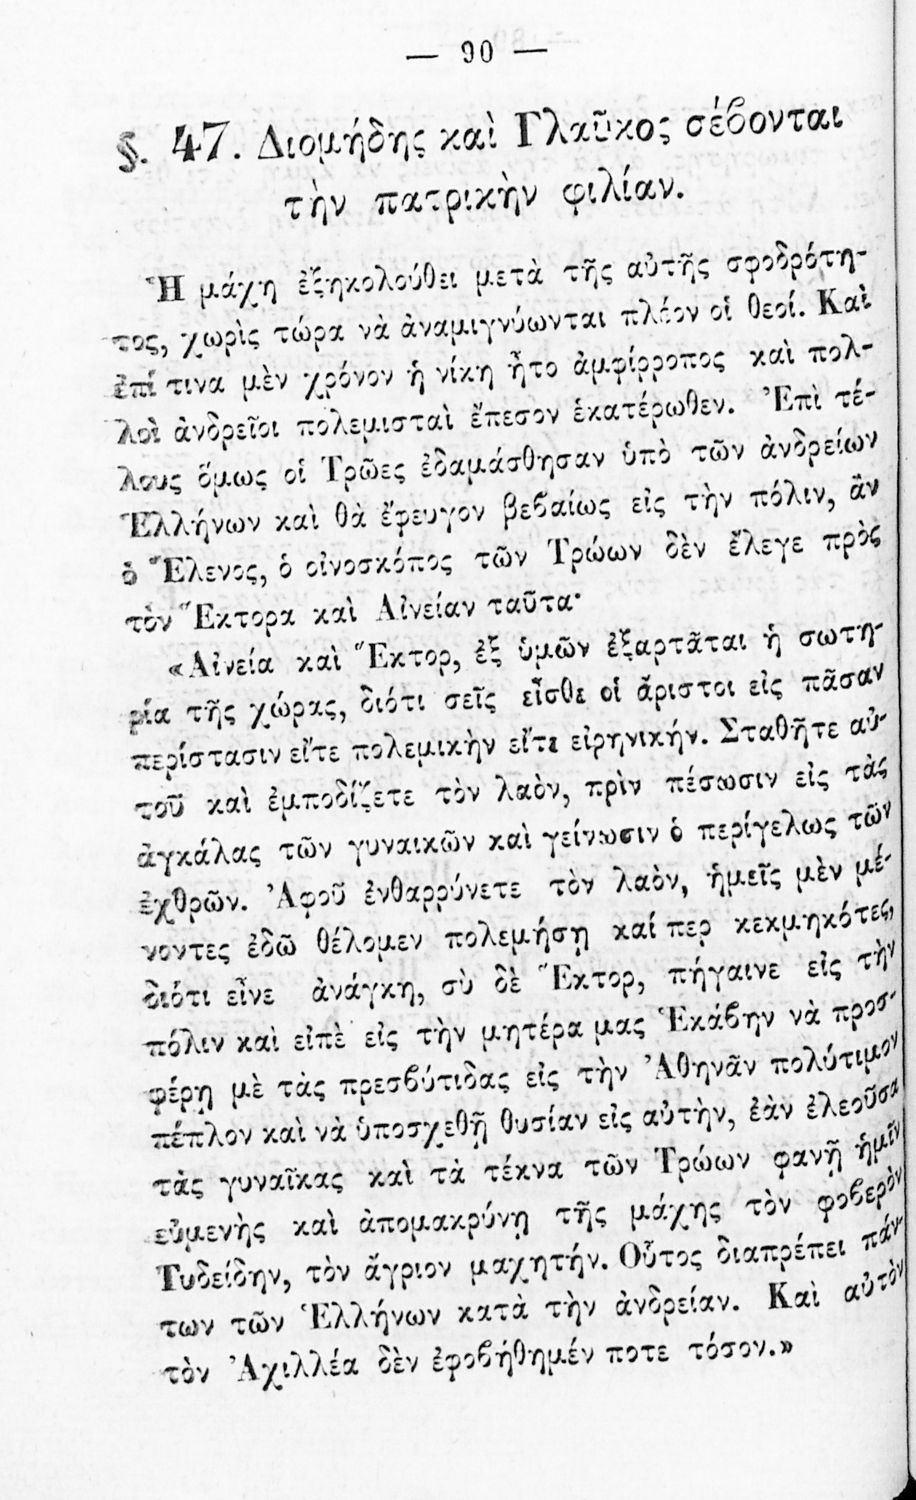 — 90 —
§. 47. Διομήδης καὶ Γλαῦκος σέβονται
τὴν πατρικὴν φιλίαν.
Ἡ μάχη ἐξηκολούθει μετὰ τῆς αὐτῆς σφοδρότη-
τος, χωρὶς τώρα νὰ ἀναμιγνύωνται πλέον οἱ θεοί. Καὶ
ἐπί τινα μὲν χρόνον ἡ νίκη ἦτο ἀμφίρροπος καὶ πολ-
λοὶ ἀνδρεῖοι πολεμισταὶ ἔπεσον ἑκατέρωθεν. Ἐπὶ τέ-
λους ὅμως οἱ Τρῶες ἐδαμάσθησαν ὑπὸ τῶν ἀνδρείων
Ἑλλήνων καὶ θὰ ἔφευγον βεβαίως εἰς τὴν πόλιν, ἂν
ὁ Ἕλενος, ὁ οἰνοσκόπος τῶν Τρώων δὲν ἔλεγε πρὸς
τὸν Ἕκτορα καὶ Αἰνείαν ταῦτα·
«Αἰνεία καὶ Ἕκτορ, ἐξ ὑμῶν ἐξαρτᾶται ἡ σωτη-
ρία τῆς χώρας, διότι σεῖς εἶσθε οἱ ἄριστοι εἰς πᾶσαν
περίστασιν εἴτε πολεμικὴν εἴτε εἰρηνικήν. Σταθῆτε αὐ-
τοῦ καὶ ἐμποδίζετε τὸν λαὸν, πρὶν πέσωσιν εἰς τὰς
ἀγκάλας τῶν γυναικῶν καὶ γείνωσιν ὁ περίγελως τῶν
ἐχθρῶν. Ἀφοῦ ἐνθαρρύνετε τὸν λαὸν, ἡμεῖς μὲν μέ-
νοντες ἐδῶ θέλομεν πολεμήσῃ καί περ κεκμηκότες,
διότι εἶνε ἀνάγκη, σὺ δὲ Ἕκτορ, πήγαινε εἰς τὴν
πόλιν καὶ εἰπὲ εἰς τὴν μητέρα μας Ἑκάβην νὰ προσ-
φέρῃ μὲ τὰς πρεσβύτιδας εἰς τὴν Ἀθηνᾶν πολύτιμον
πέπλον καὶ νὰ ὑποσχεθῇ θυσίαν εἰς αὐτὴν, ἐὰν ἐλεοῦσα
τὰς γυναῖκας καὶ τὰ τέκνα τῶν Τρώων φανῇ ἡμῖν
εὐμενὴς καὶ ἀπομακρύνῃ τῆς μάχης τὸν φοβερὸν
Τυδείδην, τὸν ἄγριον μαχητήν. Οὗτος διαπρέπει πάν-
των τῶν Ἑλλήνων κατὰ τὴν ἀνδρείαν. Καὶ αὐτὸν
τὸν Ἀχιλλέα δὲν ἐφοβήθημέν ποτε τόσον.»